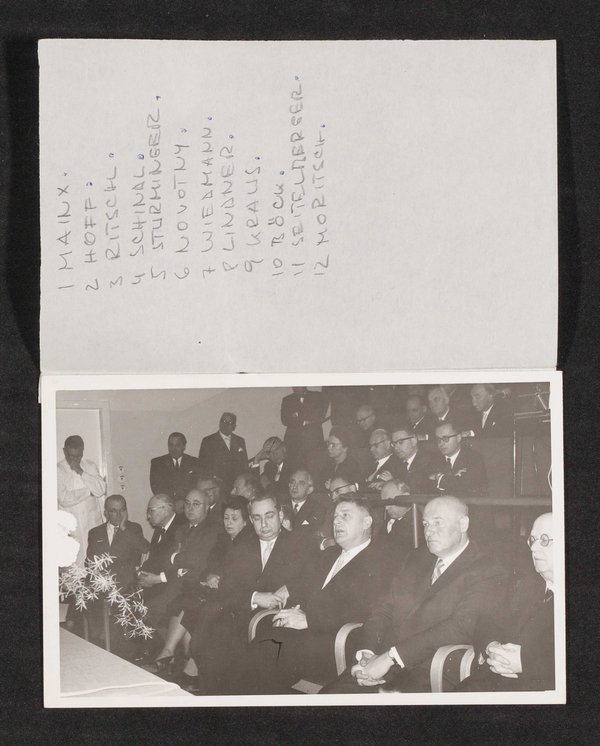 1 MAINX.
2 HOFF.
3 RITSCHL.
4 SCHINDL.
5 STURMINGER.
6 NOVOTNY.
7 WIEDMANN.
8 LINDNER.
9 KRAUS.
10 BÖCK.
11 SEITELBERGER.
12 MORITSCH.